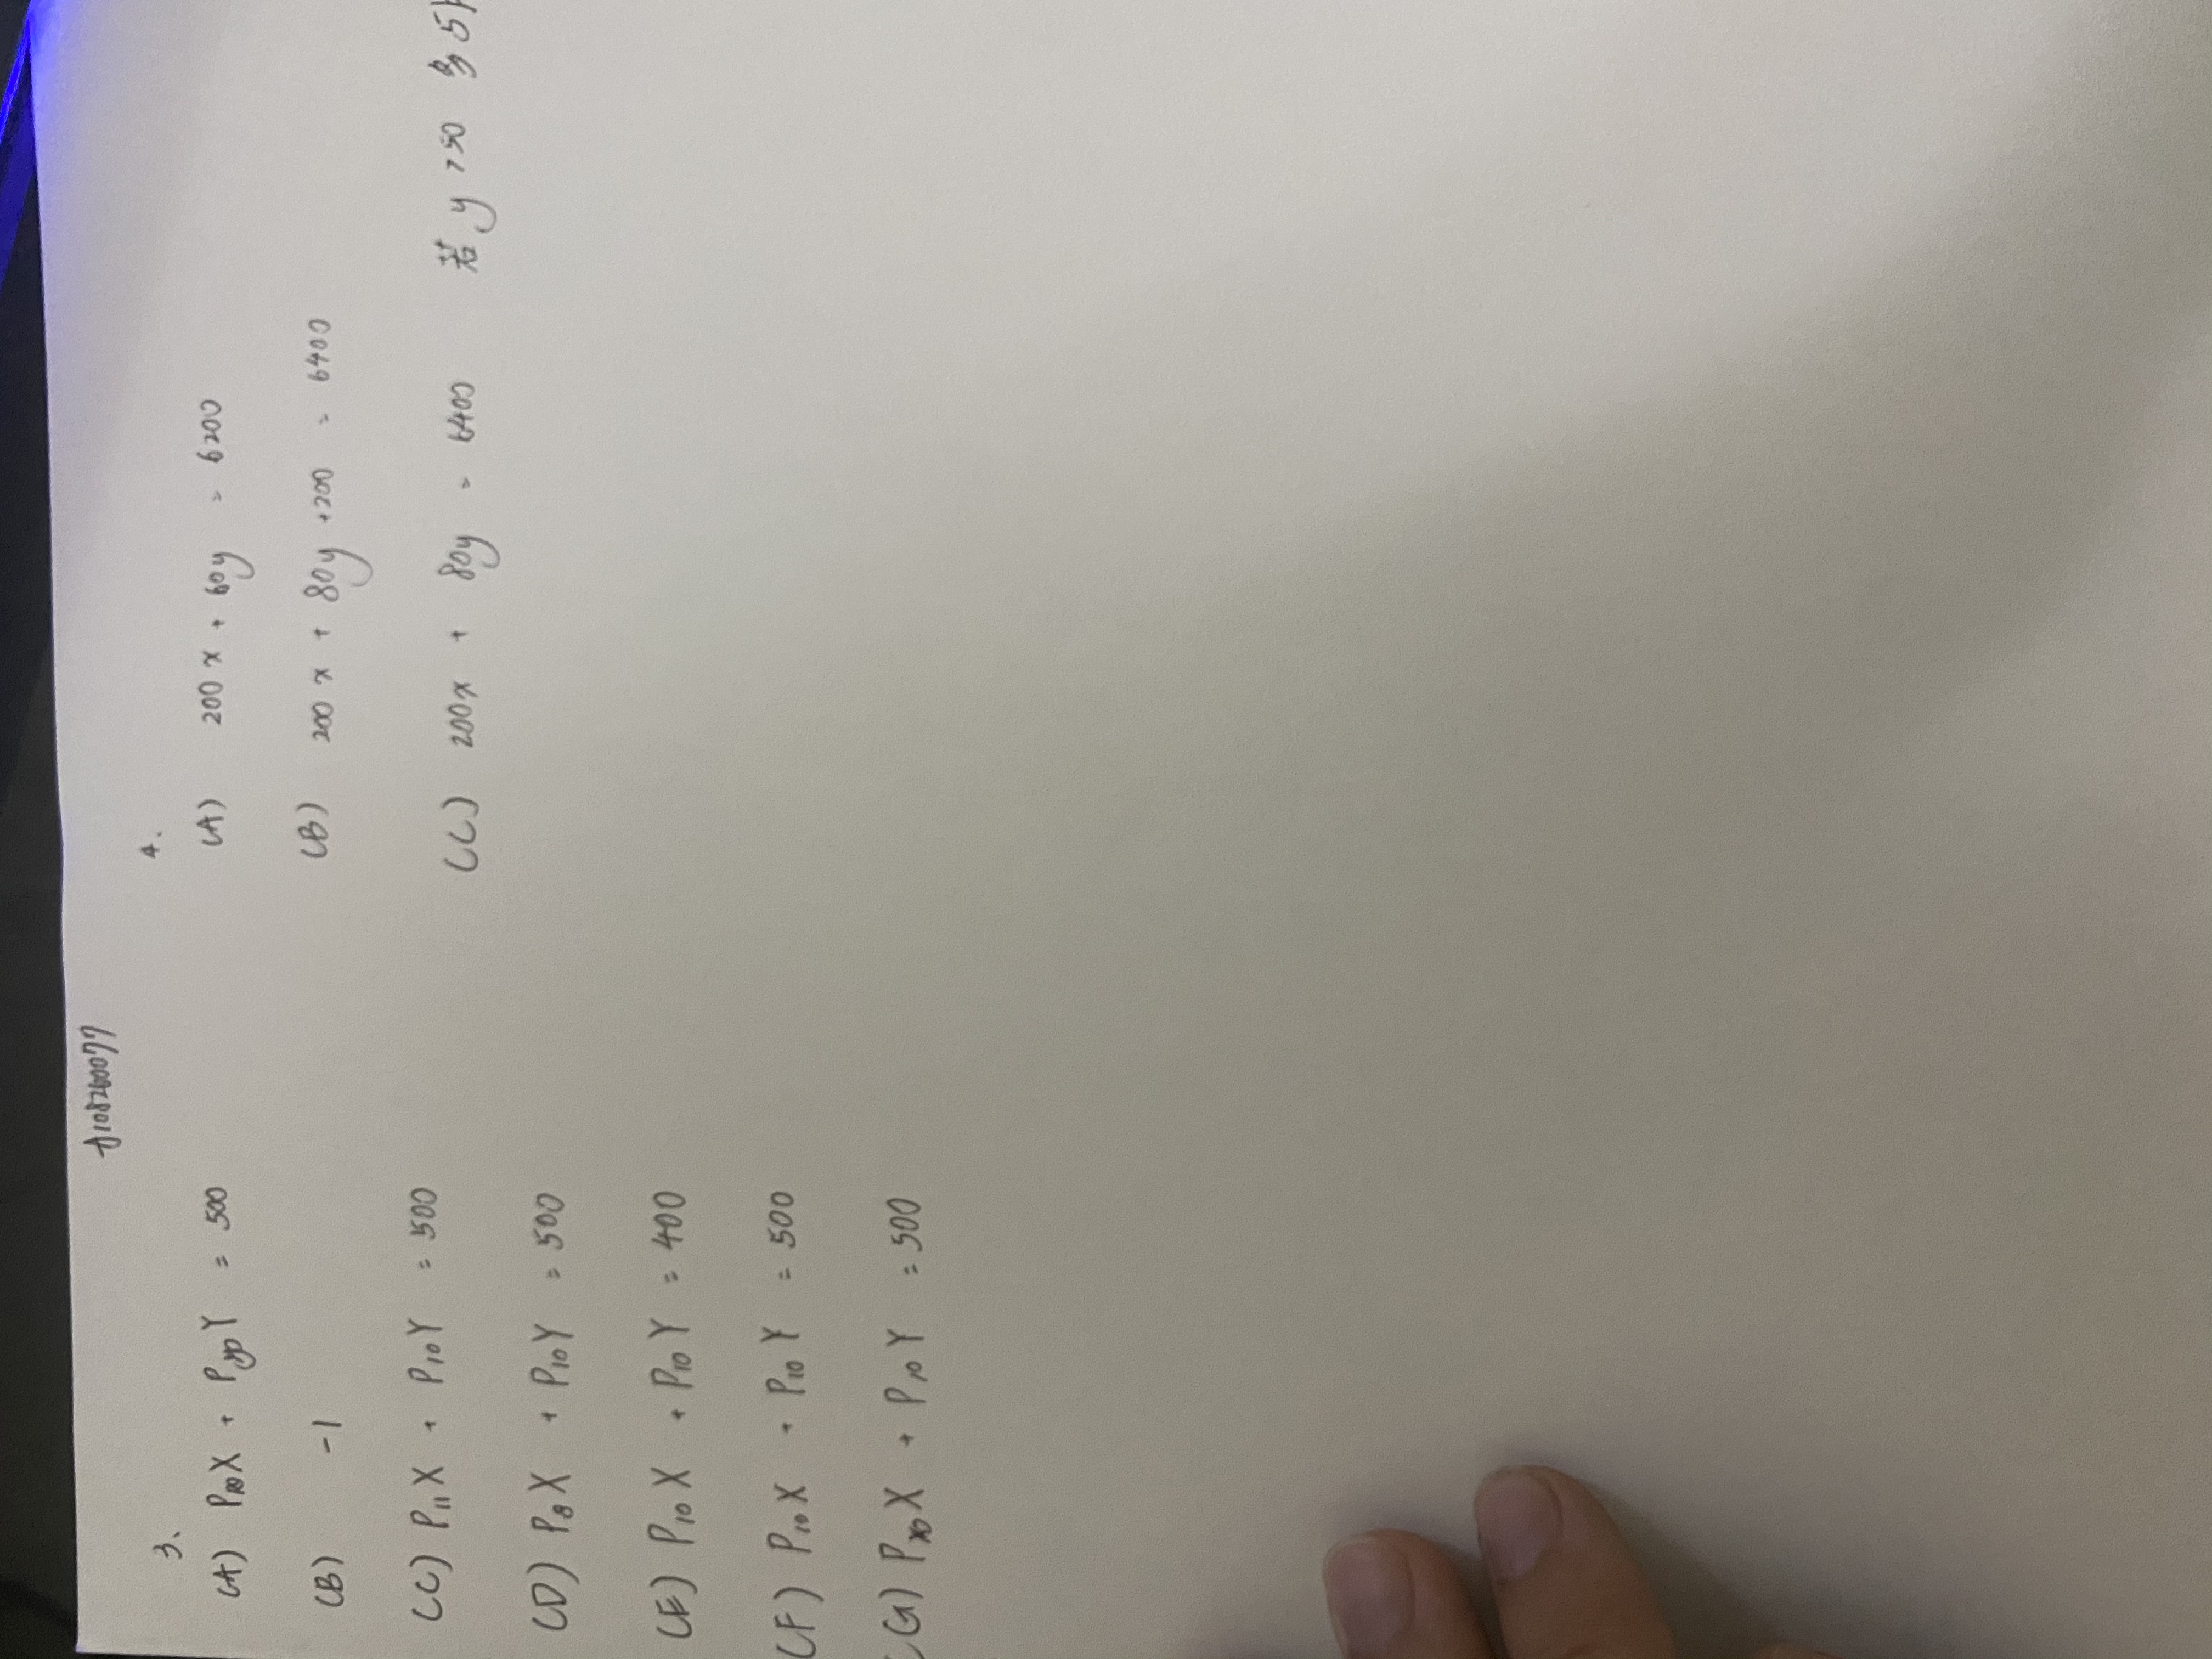 A108260077
3、
(A) P₁₀X + P₁₀Y = 500
(B) -1
(C) P₁₁X + P₁₀Y = 500
(D) P₈X + P₁₀Y = 500
(E) P₁₀X + P₁₀Y = 400
(F) P₁₀X + P₁₀Y = 500
(G) P₁₀X + P₁₀Y = 500
4.
(A) 200x + 60y = 6200
(B) 200x + 80y +200 = 6400
(C) 200x + 80y = 6400 若 y >50 多5